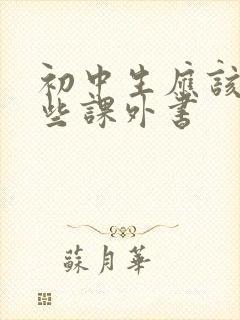 初中生應該
些課外書
蘇月華